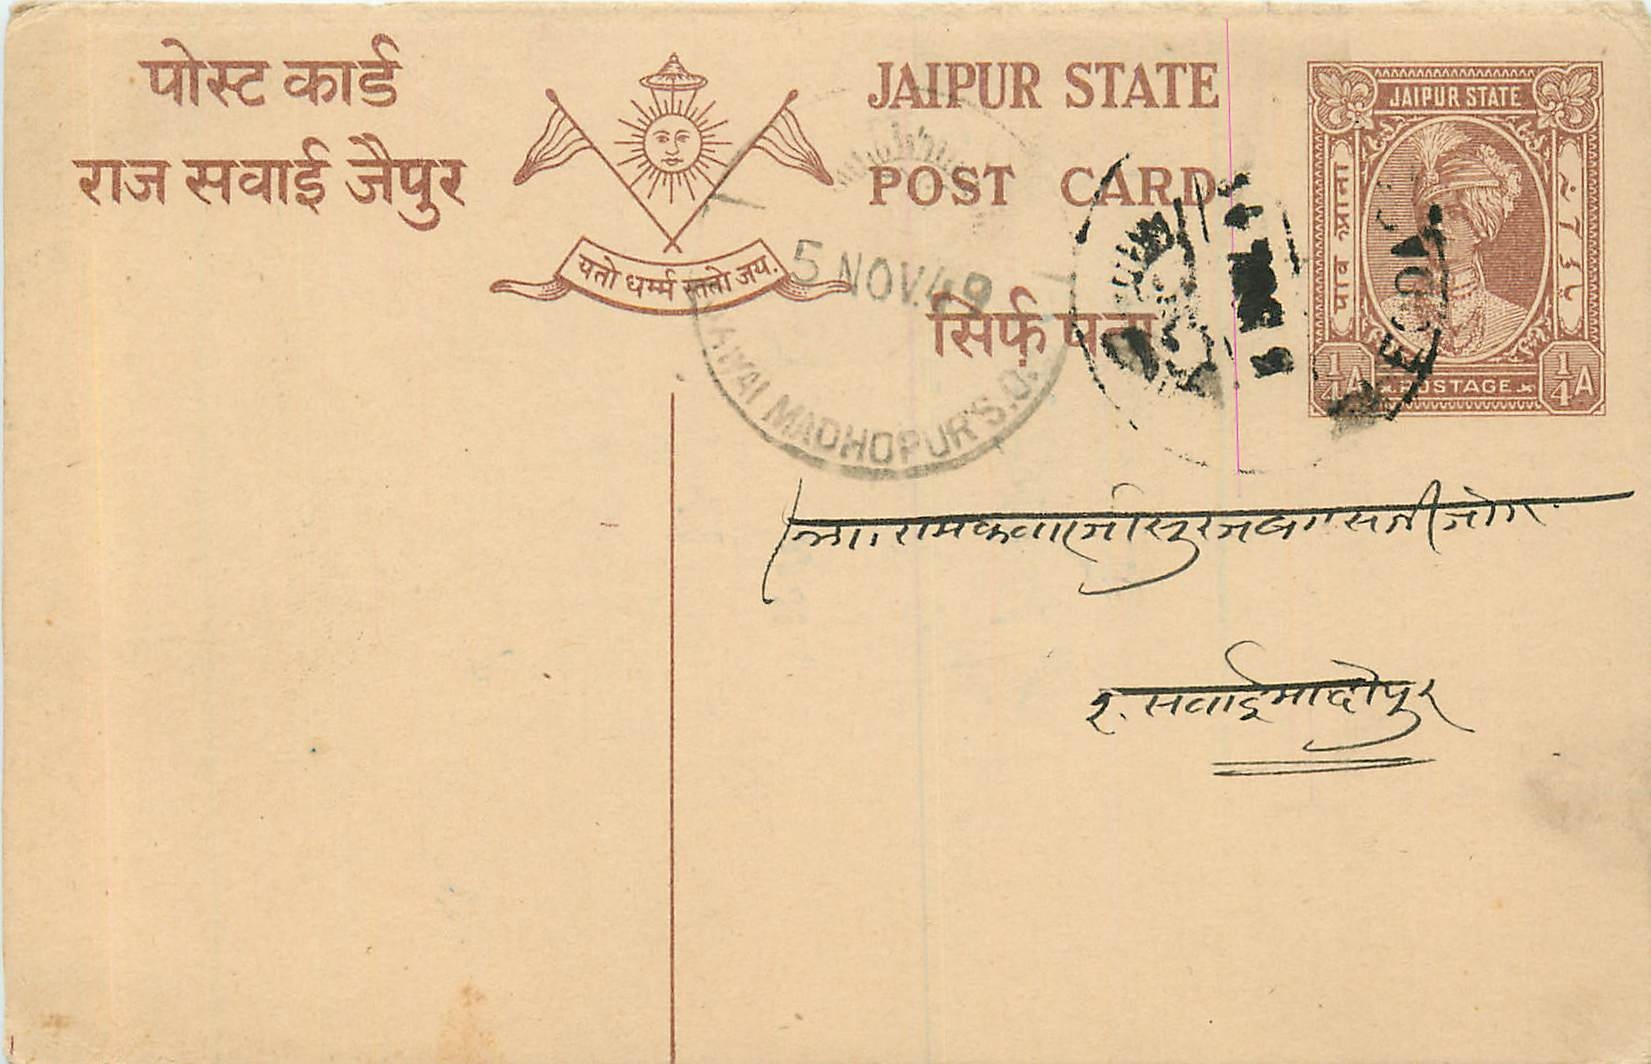 पोस्ट कार्ड
राज सवाई जैपुर
यतो धर्म्म स्ततो जय.
JAIPUR STATE
POST CARD
सिर्फ़ पता
JAIPUR STATE
पाव आना
1/4 A
POSTAGE
1/4 A
5 NOV.49
SAWAI MADHOPUR S.O.
सवाईमादोपुर